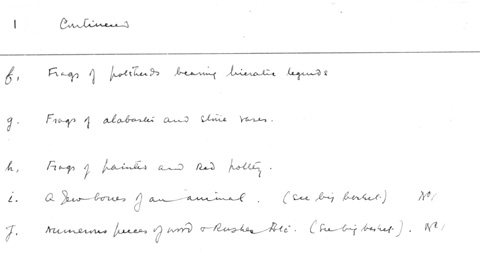 1 Continued
f. Frags of potsherds bearing hieratic legends
g. Frags of alabaster and stone vases.
h. Frags of painted and Red pottery.
i. A few bones of an animal. (See big basket) No 1
J. Numerous pieces of wood & Rushes (See big basket). No 1